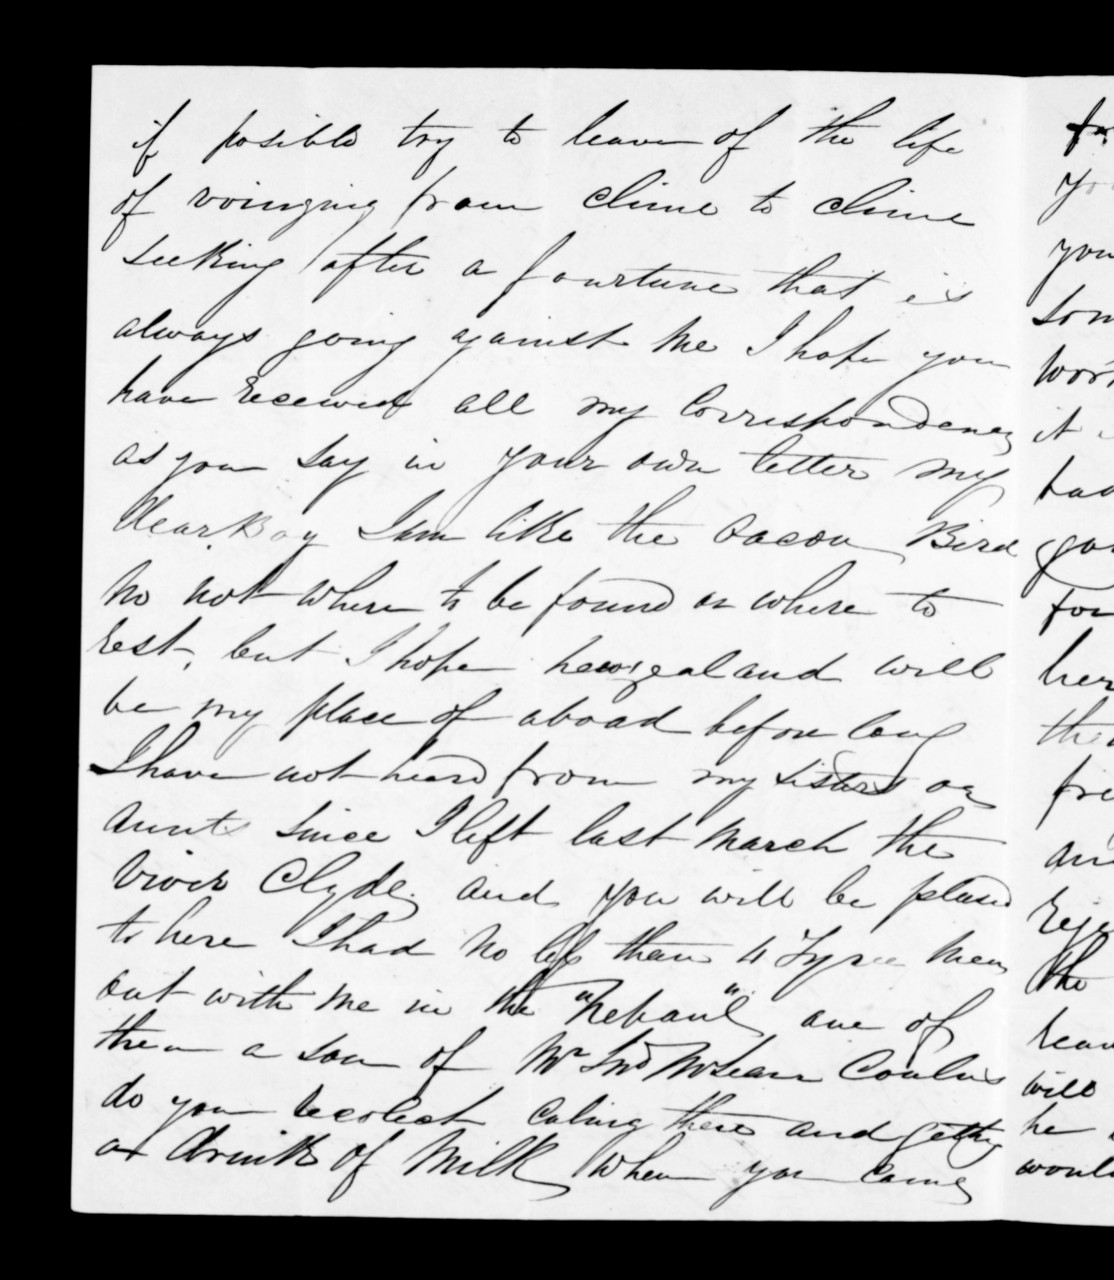 if posible try to leave of the life
of roinging from clime to clime
seeking after a fourtune that is
always going against me I hope you
have received all my Correspondency
as you say in your own letter my
dear Boy I am like the Bird
no not where to be found or where to
rest, but I hope newzealand will
be my place of aboad before long
I have not heard from my sisters or
Aunts since I left last March the
River Clyde. and you will be plased
to here I had no less than 4 Tyree men
out with me in the "Nepaul" one of
them a son of Mr Jno McLean
do you recolect caling there and getting
a drink of Milk when you came